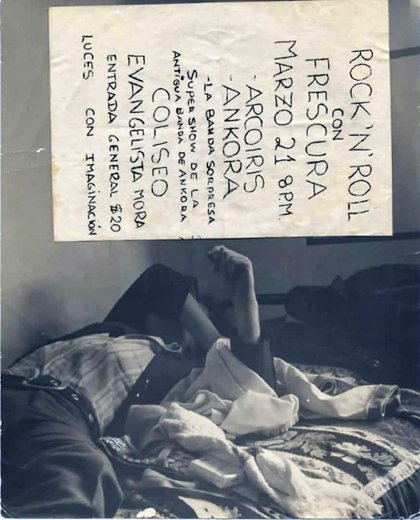 ROCK 'N' ROLL
CON
FRESCURA
MARZO 21 8 P.M.
- ARCOIRIS
- ANKORA
- LA BANDA SORPRESA
SUPER SHOW DE LA
ANTIGUA BANDA DE ANKORA
COLISEO
EVANGELISTA MORA
ENTRADA GENERAL $20
LUCES CON IMAGINACIÓN